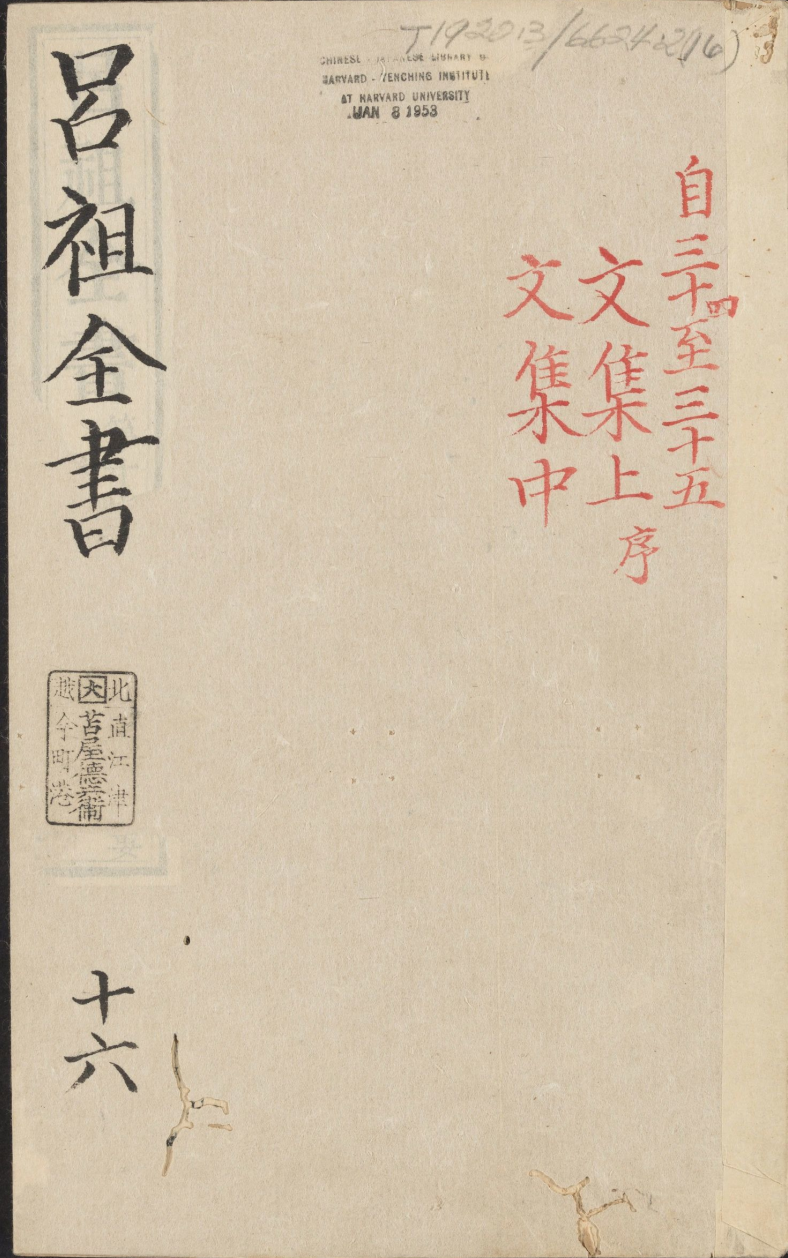 T1920.13/6624.2(16)
CHINESE - JAPANESE LIBRARY OF
HARVARD - YENCHING INSTITUTE
AT HARVARD UNIVERSITY
JAN 8 1953
自三十四至三十五
文集上序
文集中
呂祖全書
北直江津
大苫屋德兵衛
越今町港
十六